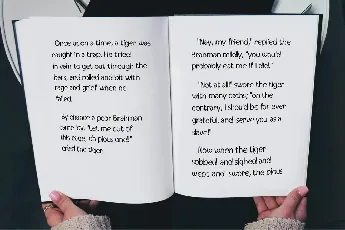 Once upon a time, a tiger was
caught in a trap. He tried
in vain to get out through the
bars, and rolled and bit with
rage and grief when he
failed.
By chance a poor Brahman
came by. "Let me out of
this cage, oh pious one!"
cried the tiger.
"Nay, my friend," replied the
Brahman mildly, "you would
probably eat me if I did."
"Not at all!" swore the tiger
with many oaths; "on the
contrary, I should be for ever
grateful, and serve you as a
slave!"
Now when the tiger
sobbed and sighed and
wept and swore, the pious